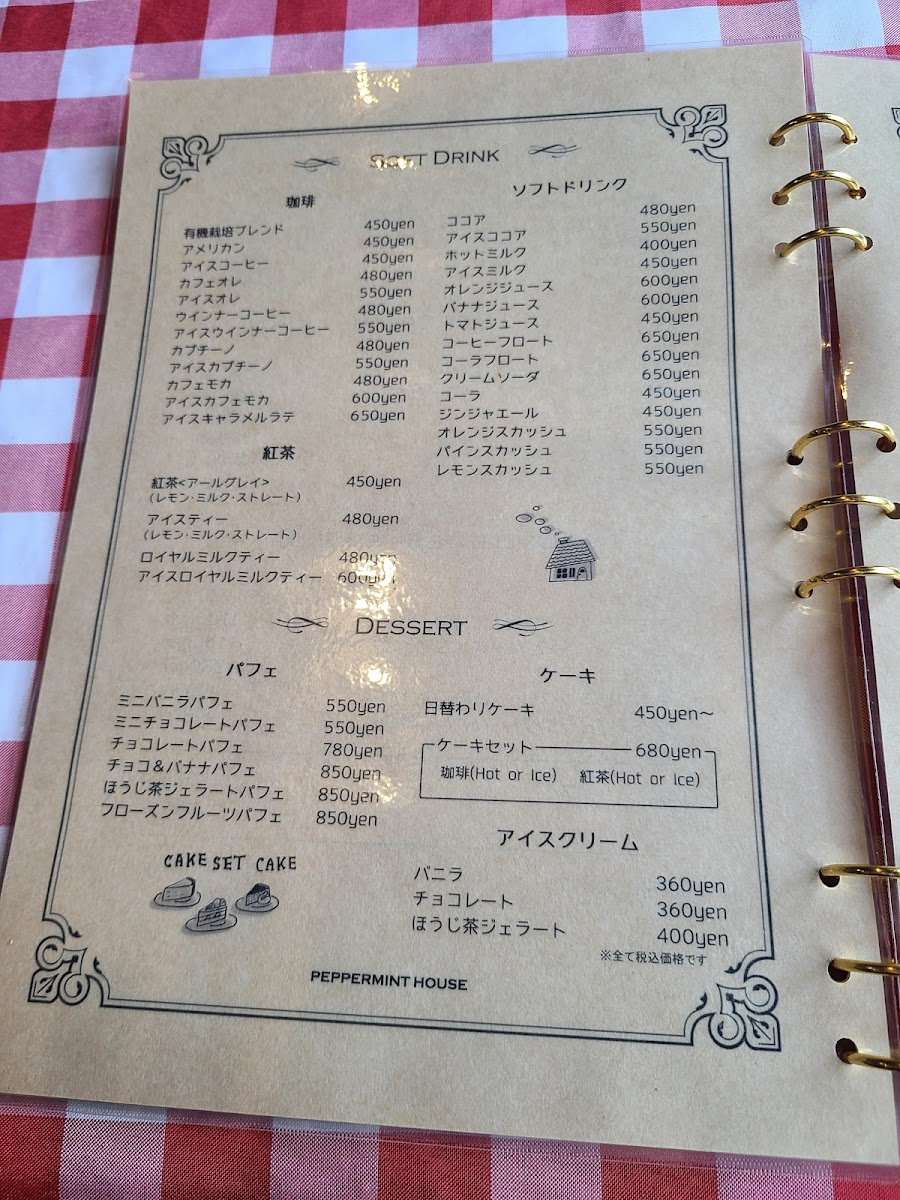 SOFT DRINK
珈琲
有機栽培ブレンド 450yen
アメリカン 450yen
アイスコーヒー 450yen
カフェオレ 480yen
アイスオレ 550yen
ウインナーコーヒー 480yen
アイスウインナーコーヒー 550yen
カプチーノ 480yen
アイスカプチーノ 550yen
カフェモカ 480yen
アイスカフェモカ 600yen
アイスキャラメルラテ 650yen
紅茶
紅茶<アールグレイ> 450yen
(レモン・ミルク・ストレート)
アイスティー 480yen
(レモン・ミルク・ストレート)
ロイヤルミルクティー 480yen
アイスロイヤルミルクティー 600yen
ソフトドリンク
ココア 480yen
アイスココア 550yen
ホットミルク 400yen
アイスミルク 450yen
オレンジジュース 600yen
バナナジュース 600yen
トマトジュース 450yen
コーヒーフロート 650yen
コーラフロート 650yen
クリームソーダ 650yen
コーラ 450yen
ジンジャエール 450yen
オレンジスカッシュ 550yen
パインスカッシュ 550yen
レモンスカッシュ 550yen
DESSERT
パフェ
ミニバニラパフェ 550yen
ミニチョコレートパフェ 550yen
チョコレートパフェ 780yen
チョコ&バナナパフェ 850yen
ほうじ茶ジェラートパフェ 850yen
フローズンフルーツパフェ 850yen
CAKE SET CAKE
ケーキ
日替わりケーキ 450yen～
ケーキセット 680yen
珈琲(Hot or Ice) 紅茶(Hot or Ice)
アイスクリーム
バニラ 360yen
チョコレート 360yen
ほうじ茶ジェラート 400yen
※全て税込価格です
PEPPERMINT HOUSE